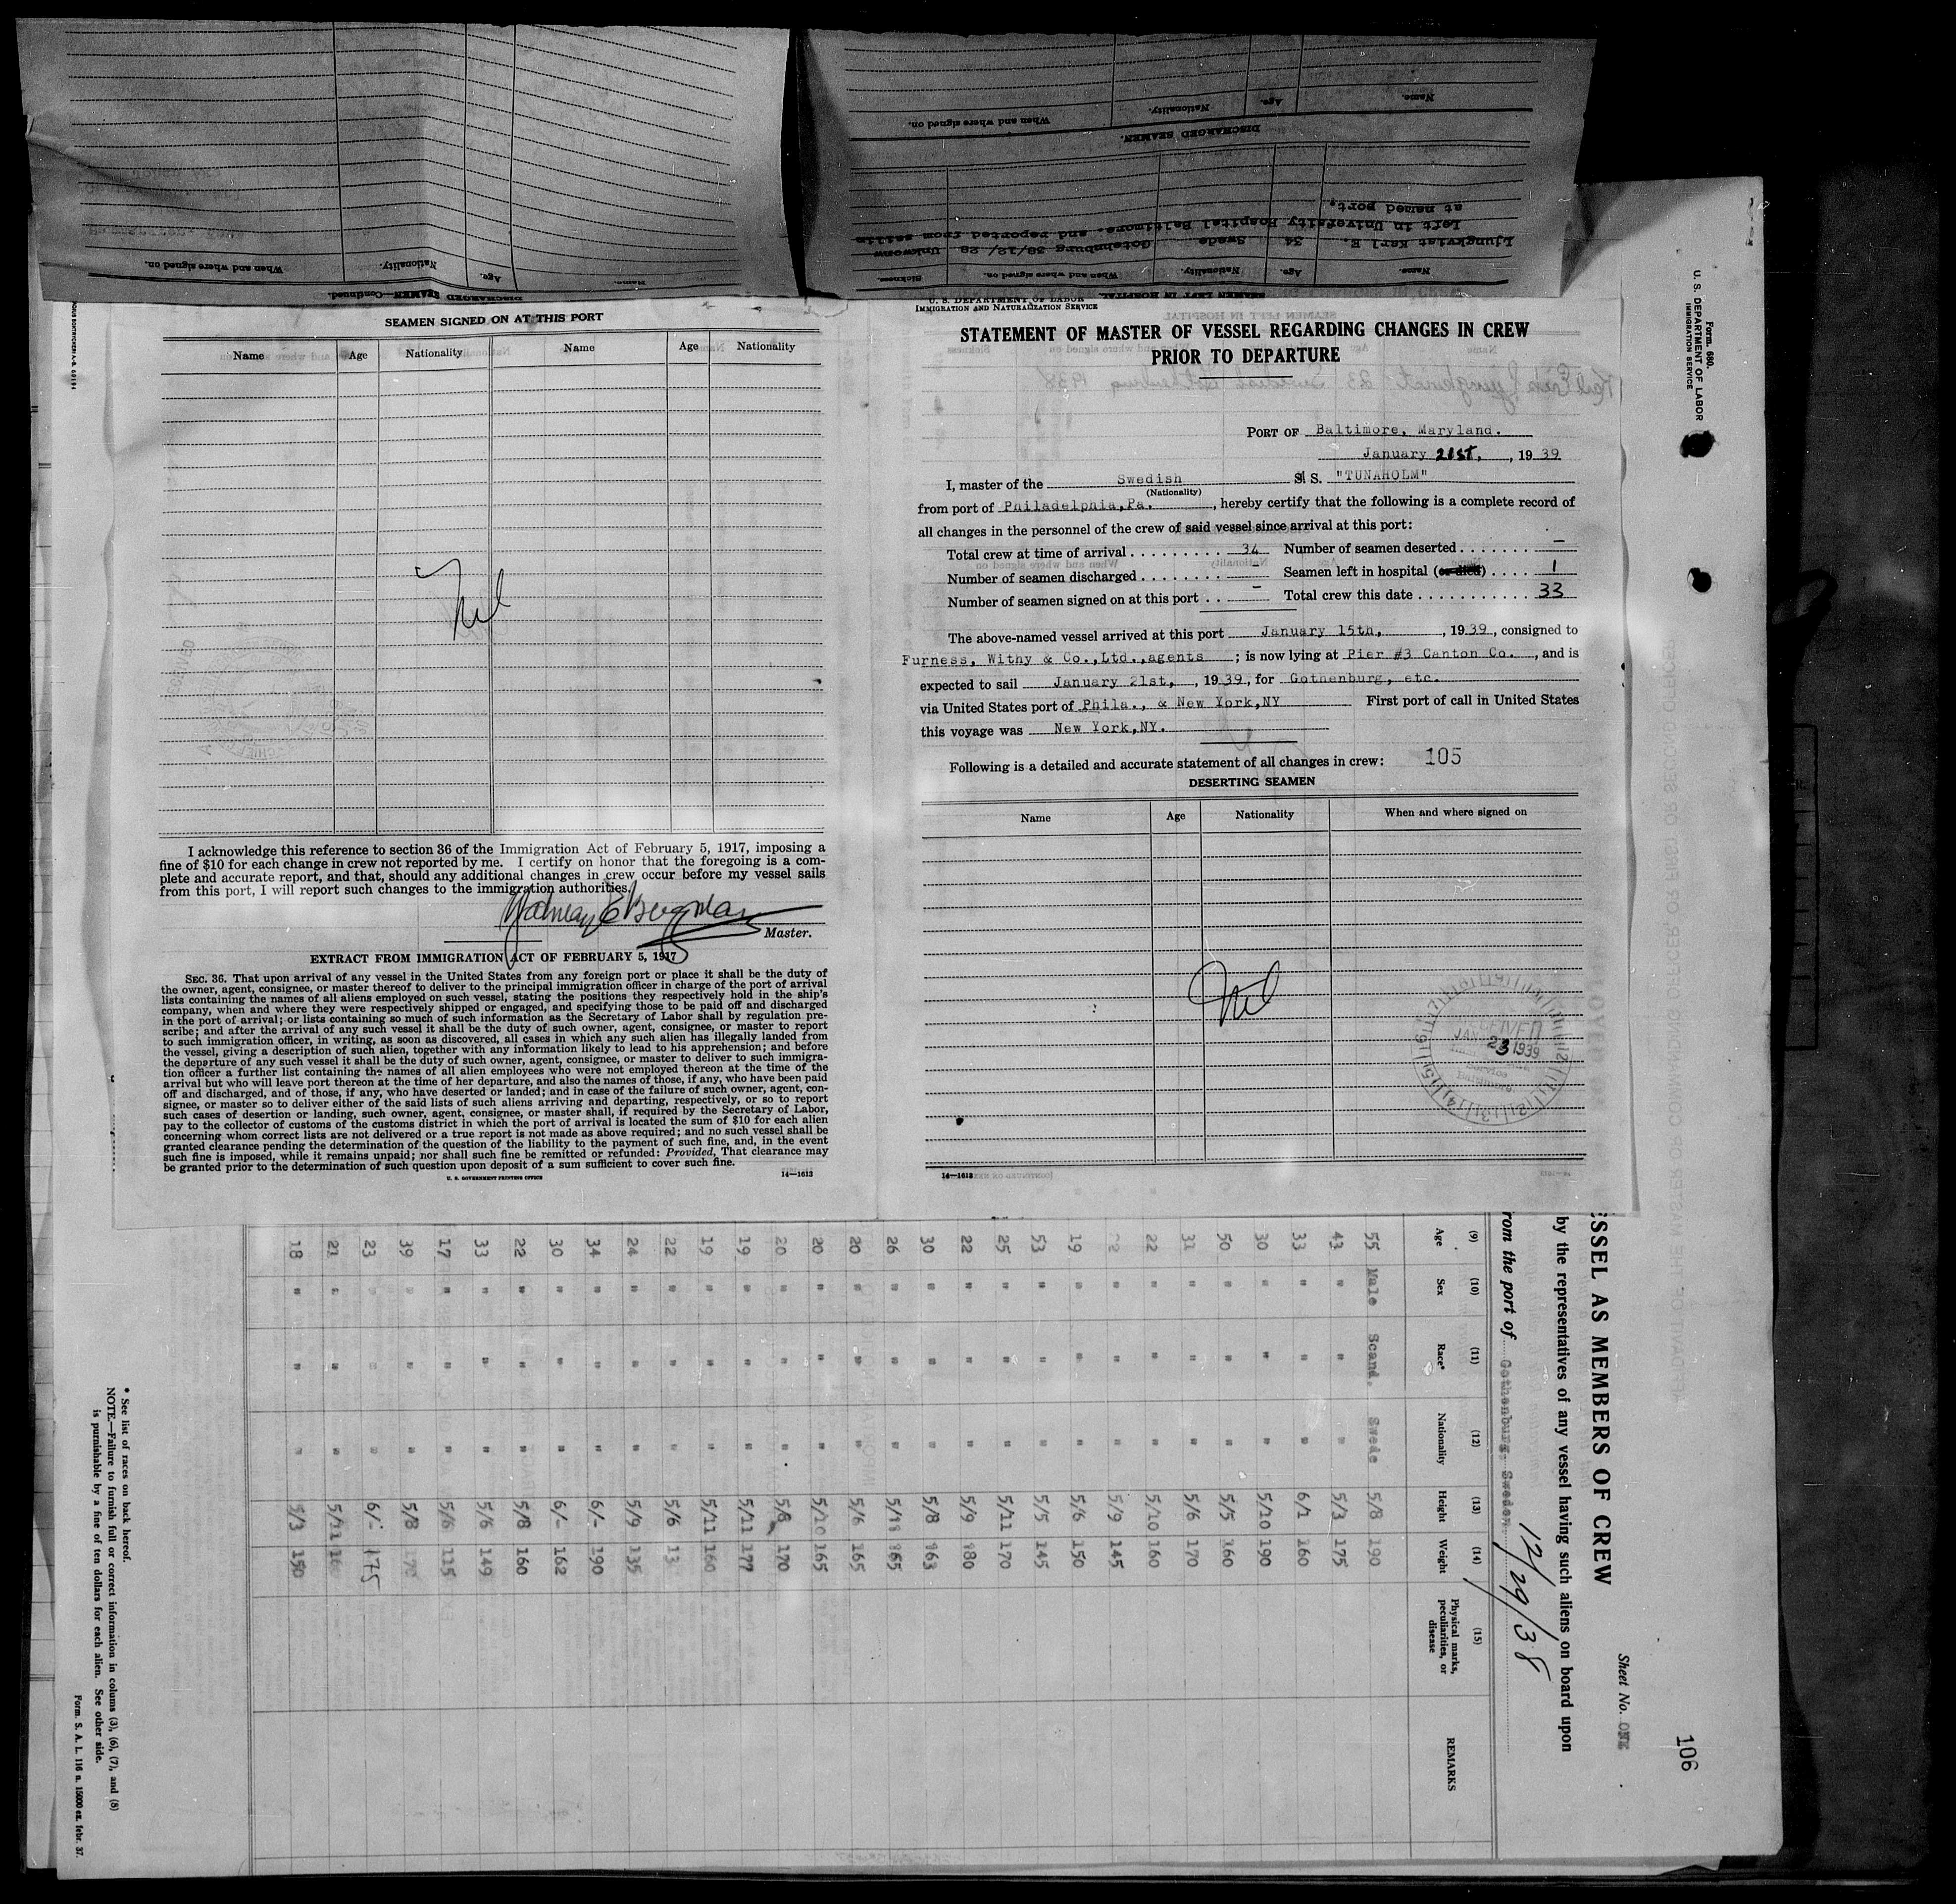 When and where signed on.
Nationality.
Age.
Name.
DISCHARGED SEAMEN.
Ljungkvist Karl E. 34 Swede Gotehnburg 38/12/ 28 Unknown
Left in University Hospital Baltimore. and reported from
at named port.
Name. Age. Nationality. When and where signed on. Sickness.
SEAMEN LEFT IN HOSPITAL
DISCHARGED SEAMEN—Continued.
Name. Age. Nationality. When and where signed on.
SEAMEN SIGNED ON AT THIS PORT
Name Age Nationality Name Age Nationality
Nil
I acknowledge this reference to section 36 of the Immigration Act of February 5, 1917, imposing a
fine of $10 for each change in crew not reported by me. I certify on honor that the foregoing is a com-
plete and accurate report, and that, should any additional changes in crew occur before my vessel sails
from this port, I will report such changes to the immigration authorities.
Master.
EXTRACT FROM IMMIGRATION ACT OF FEBRUARY 5, 1917
SEC. 36. That upon arrival of any vessel in the United States from any foreign port or place it shall be the duty of
the owner, agent, consignee, or master thereof to deliver to the principal immigration officer in charge of the port of arrival
lists containing the names of all aliens employed on such vessel, stating the positions they respectively hold in the ship's
company, when and where they were respectively shipped or engaged, and specifying those to be paid off and discharged
in the port of arrival; or lists containing so much of such information as the Secretary of Labor shall by regulation pre-
scribe; and after the arrival of any such vessel it shall be the duty of such owner, agent, consignee, or master to report
to such immigration officer, in writing, as soon as discovered, all cases in which any such alien has illegally landed from
the vessel, giving a description of such alien, together with any information likely to lead to his apprehension; and before
the departure of any such vessel it shall be the duty of such owner, agent, consignee, or master to deliver to such immigra-
tion officer a further list containing the names of all alien employees who were not employed thereon at the time of the
arrival but who will leave port thereon at the time of her departure, and also the names of those, if any, who have been paid
off and discharged, and of those, if any, who have deserted or landed; and in case of the failure of such owner, agent, con-
signee, or master so to deliver either of the said lists of such aliens arriving and departing, respectively, or so to report
such cases of desertion or landing, such owner, agent, consignee, or master shall, if required by the Secretary of Labor,
pay to the collector of customs of the customs district in which the port of arrival is located the sum of $10 for each alien
concerning whom correct lists are not delivered or a true report is not made as above required; and no such vessel shall be
granted clearance pending the determination of the question of the liability to the payment of such fine, and, in the event
such fine is imposed, while it remains unpaid; nor shall such fine be remitted or refunded: Provided, That clearance may
be granted prior to the determination of such question upon deposit of a sum sufficient to cover such fine.
U. S. GOVERNMENT PRINTING OFFICE 14—1613
U. S. DEPARTMENT OF LABOR
IMMIGRATION AND NATURALIZATION SERVICE
STATEMENT OF MASTER OF VESSEL REGARDING CHANGES IN CREW
PRIOR TO DEPARTURE
PORT OF Baltimore, Maryland.
January 21st, , 1939
I, master of the Swedish S. S. "TUNAHOLM"
(Nationality)
from port of Philadelphia,Pa. , hereby certify that the following is a complete record of
all changes in the personnel of the crew of said vessel since arrival at this port:
Total crew at time of arrival . . . . . . . . . 34 Number of seamen deserted . . . . . . . –
Number of seamen discharged . . . . . . . – Seamen left in hospital (or died) . . . . 1
Number of seamen signed on at this port . . – Total crew this date . . . . . . . . . . . 33
The above-named vessel arrived at this port January 15th, , 1939, consigned to
Furness, Withy & Co.,Ltd.,agents ; is now lying at Pier #3 Canton Co. , and is
expected to sail January 21st, , 1939, for Gothenburg, etc.
via United States port of Phila., & New York,NY First port of call in United States
this voyage was New York,NY.
Following is a detailed and accurate statement of all changes in crew: 105
DESERTING SEAMEN
Name Age Nationality When and where signed on
Nil
RECEIVED
JAN 23 1939
14—1613
Form 680.
U. S. DEPARTMENT OF LABOR
IMMIGRATION SERVICE
106
Sheet No. ONE
ESSEL AS MEMBERS OF CREW
by the representatives of any vessel having such aliens on board upon
rom the port of Gothenburg, Sweden 12/29/38
(9) (10) (11) (12) (13) (14) (15)
Age Sex Race* Nationality Height Weight Physical marks, peculiarities, or disease REMARKS
55 Male Scand. Swede 5/8 190
43 " " " 5/3 175
33 " " " 6/1 160
30 " " " 5/10 190
50 " " " 5/5 160
31 " " " 5/6 170
22 " " " 5/10 160
22 " " " 5/9 145
19 " " " 5/6 150
53 " " " 5/5 145
25 " " " 5/11 170
22 " " " 5/9 180
30 " " " 5/8 163
26 " " " 5/11 165
20 " " " 5/6 165
20 " " " 5/10 165
20 " " " 5/8 170
19 " " " 5/11 177
19 " " " 5/11 160
22 " " " 5/6
24 " " " 5/9 135
34 " " " 6/- 190
30 " " " 6/- 162
22 " " " 5/8 160
33 " " " 5/6 149
17 " " " 5/6 115
39 " " " 5/8
23 " " " 6/- 175
21 " " " 5/11
18 " " " 5/3 150
* See list of races on back hereof.
NOTE.—Failure to furnish full or correct information in colums (3), (6), (7), and (8)
is punishable by a fine of ten dollars for each alien. See other side.
Form. S. A. L. 116 n. 15000 ex. febr. 37.